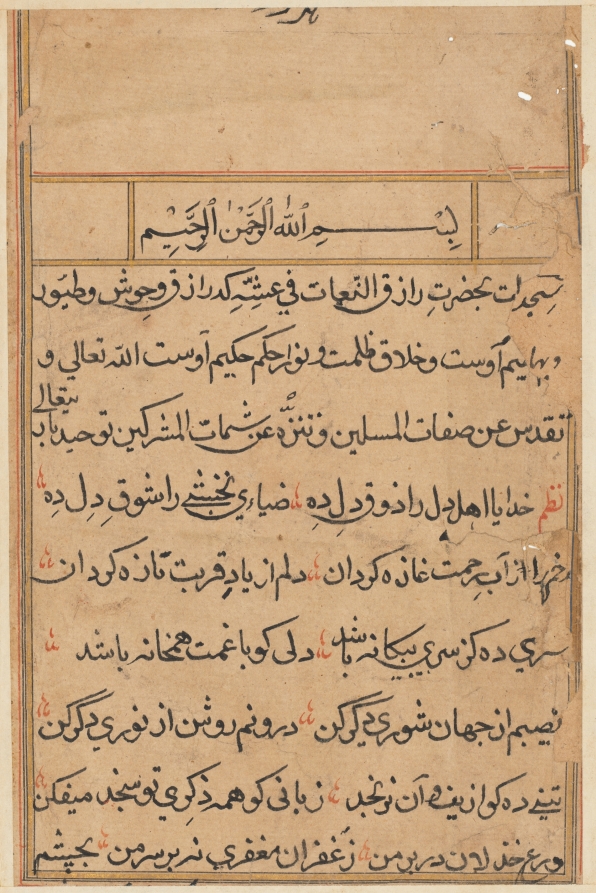 بسم الله الرحمن الرحيم
سجدات بحضرت رازق النعمات في عشته كه رازق وحوش و طيور
و بهايم اوست و خلاق ظلمت و نور احكم حكيم اوست الله تعالي و
تقدس عن صفات المسلين و تنزه عن شمات المشركين توحيد باب
تعالي
نظم خدايا اهل دل را ذوق دل ده ضياءي نخشبي را شوق دل ده
از آب رحمت غازه كردان دلم از ياد قربت تازه كردان
سري ده كز سري بيكانه باشد دلي كو با غمت همخانه باشد
نصيبم از جهان شوري دكر كن درونم روشن از نوري دكر كن
تني ده كو از آن نو نجد زباني كو همه ذكري تو سنجد ميفكن
درع خذلان در بر من ز غفران مغفري نه بر سر من بچشم